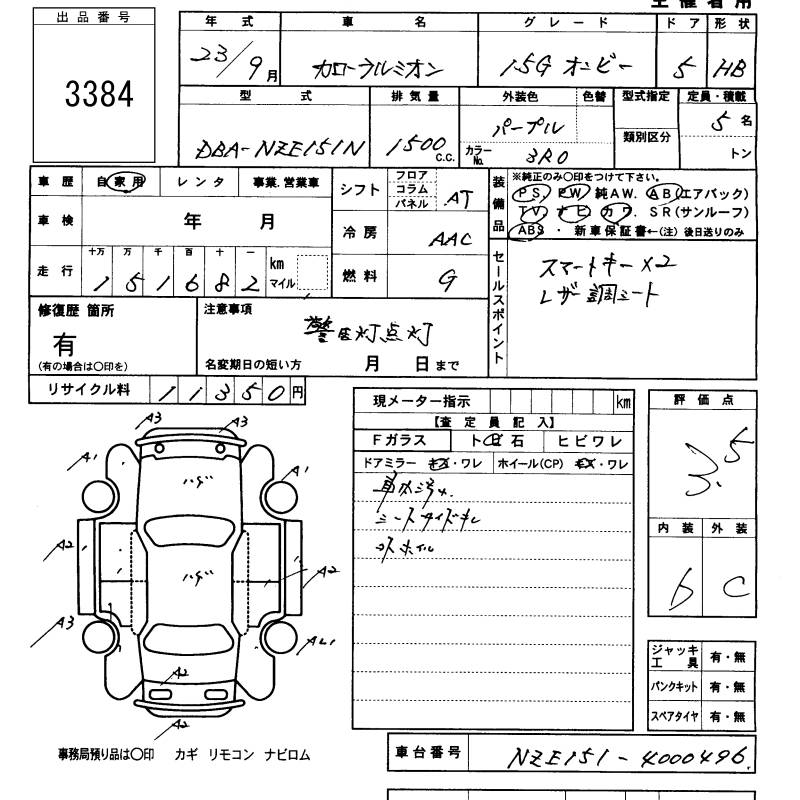 主催者用
出品番号
3384
年式 車名 グレード ドア 形状
23/9月 カローラルミオン 1.5G オンビー 5 HB
型式 排気量 外装色 色替 型式指定 定員・積載
DBA-NZE151N 1500 C.C. パープル 類別区分 5名
カラーNo. 3R0 トン
車歴 自家用 レンタ 事業.営業車
車検 年 月
走行 十万 万 千 百 十 一
151682 km マイル
シフト フロア コラム パネル AT
冷房 AAC
燃料 G
装備品
※純正のみ〇印をつけて下さい。
PS. PW. 純AW. AB(エアバック)
TV. ナビ. カワ. SR(サンルーフ)
ABS ・ 新車保証書←(注) 後日送りのみ
セールスポイント
スマートキーX2
レザー調シート
修復歴 箇所
有
(有の場合は〇印を)
注意事項
警告灯点灯
名変期日の短い方 月 日まで
リサイクル料 11350円
現メーター指示 km
【査定員記入】
Fガラス ト 石 ヒビワレ
ドアミラー キズ・ワレ ホイール(CP) キズ・ワレ
シートサイドキレ
評価点
3.5
内装 外装
b C
ジャッキ工具 有・無
パンクキット 有・無
スペアタイヤ 有・無
A3 A3
A1 A1
ハゲ
A2
ハゲ
A2
A3
A2
A2
事務局預り品は〇印 カギ リモコン ナビロム
車台番号 NZE151-4000496